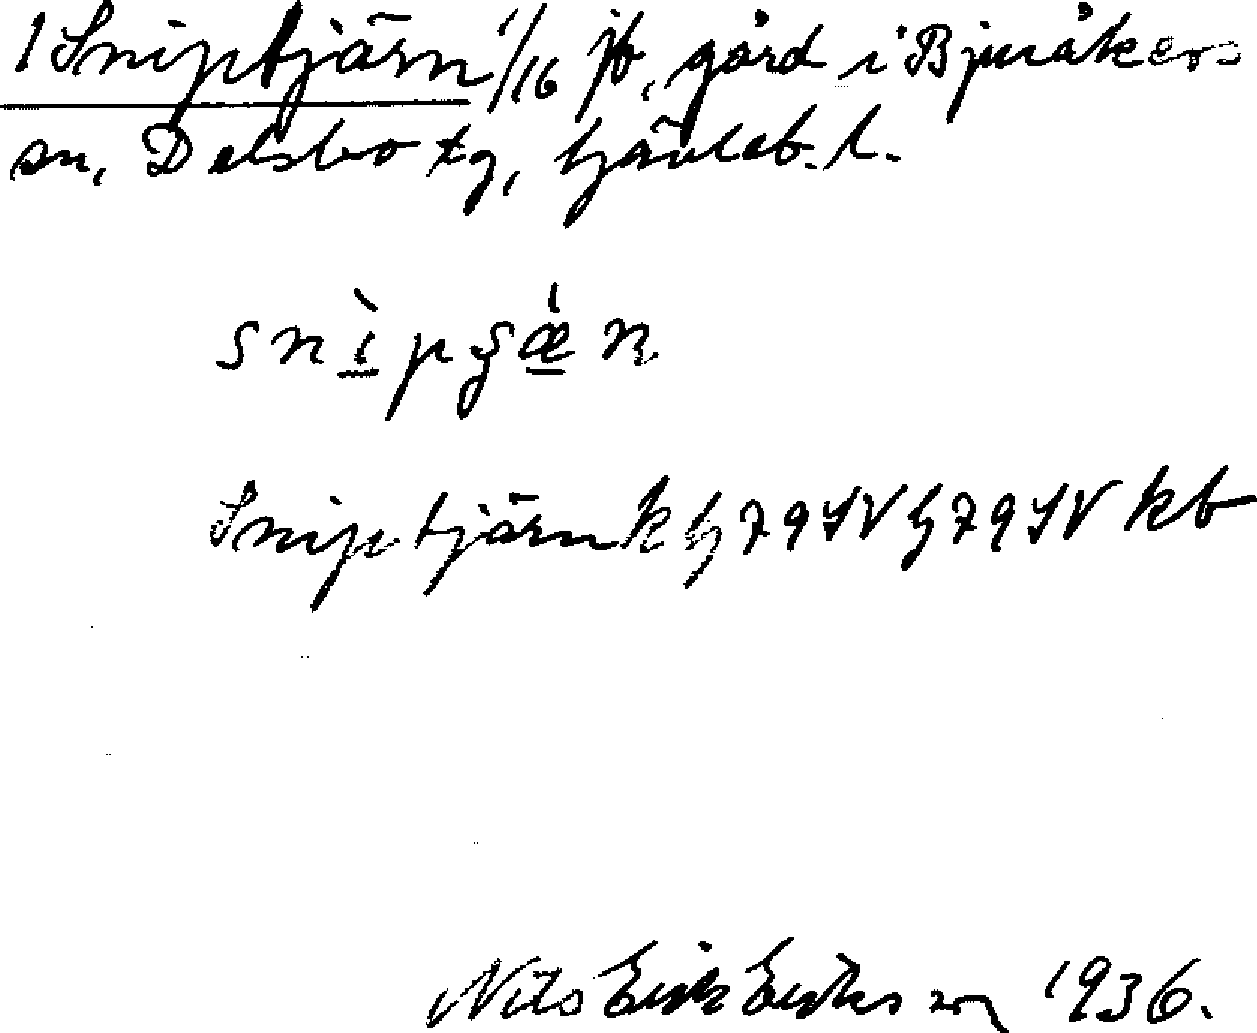 1 Sniptjärn 1/16 jb, gård i Bjuråkers
sn, Delsbo tg, Gävleb. l.
snìpʂæ̀n
Sniptjärn k G 79 SV G 79 SV kb
Nils Erik Eriksson 1936.